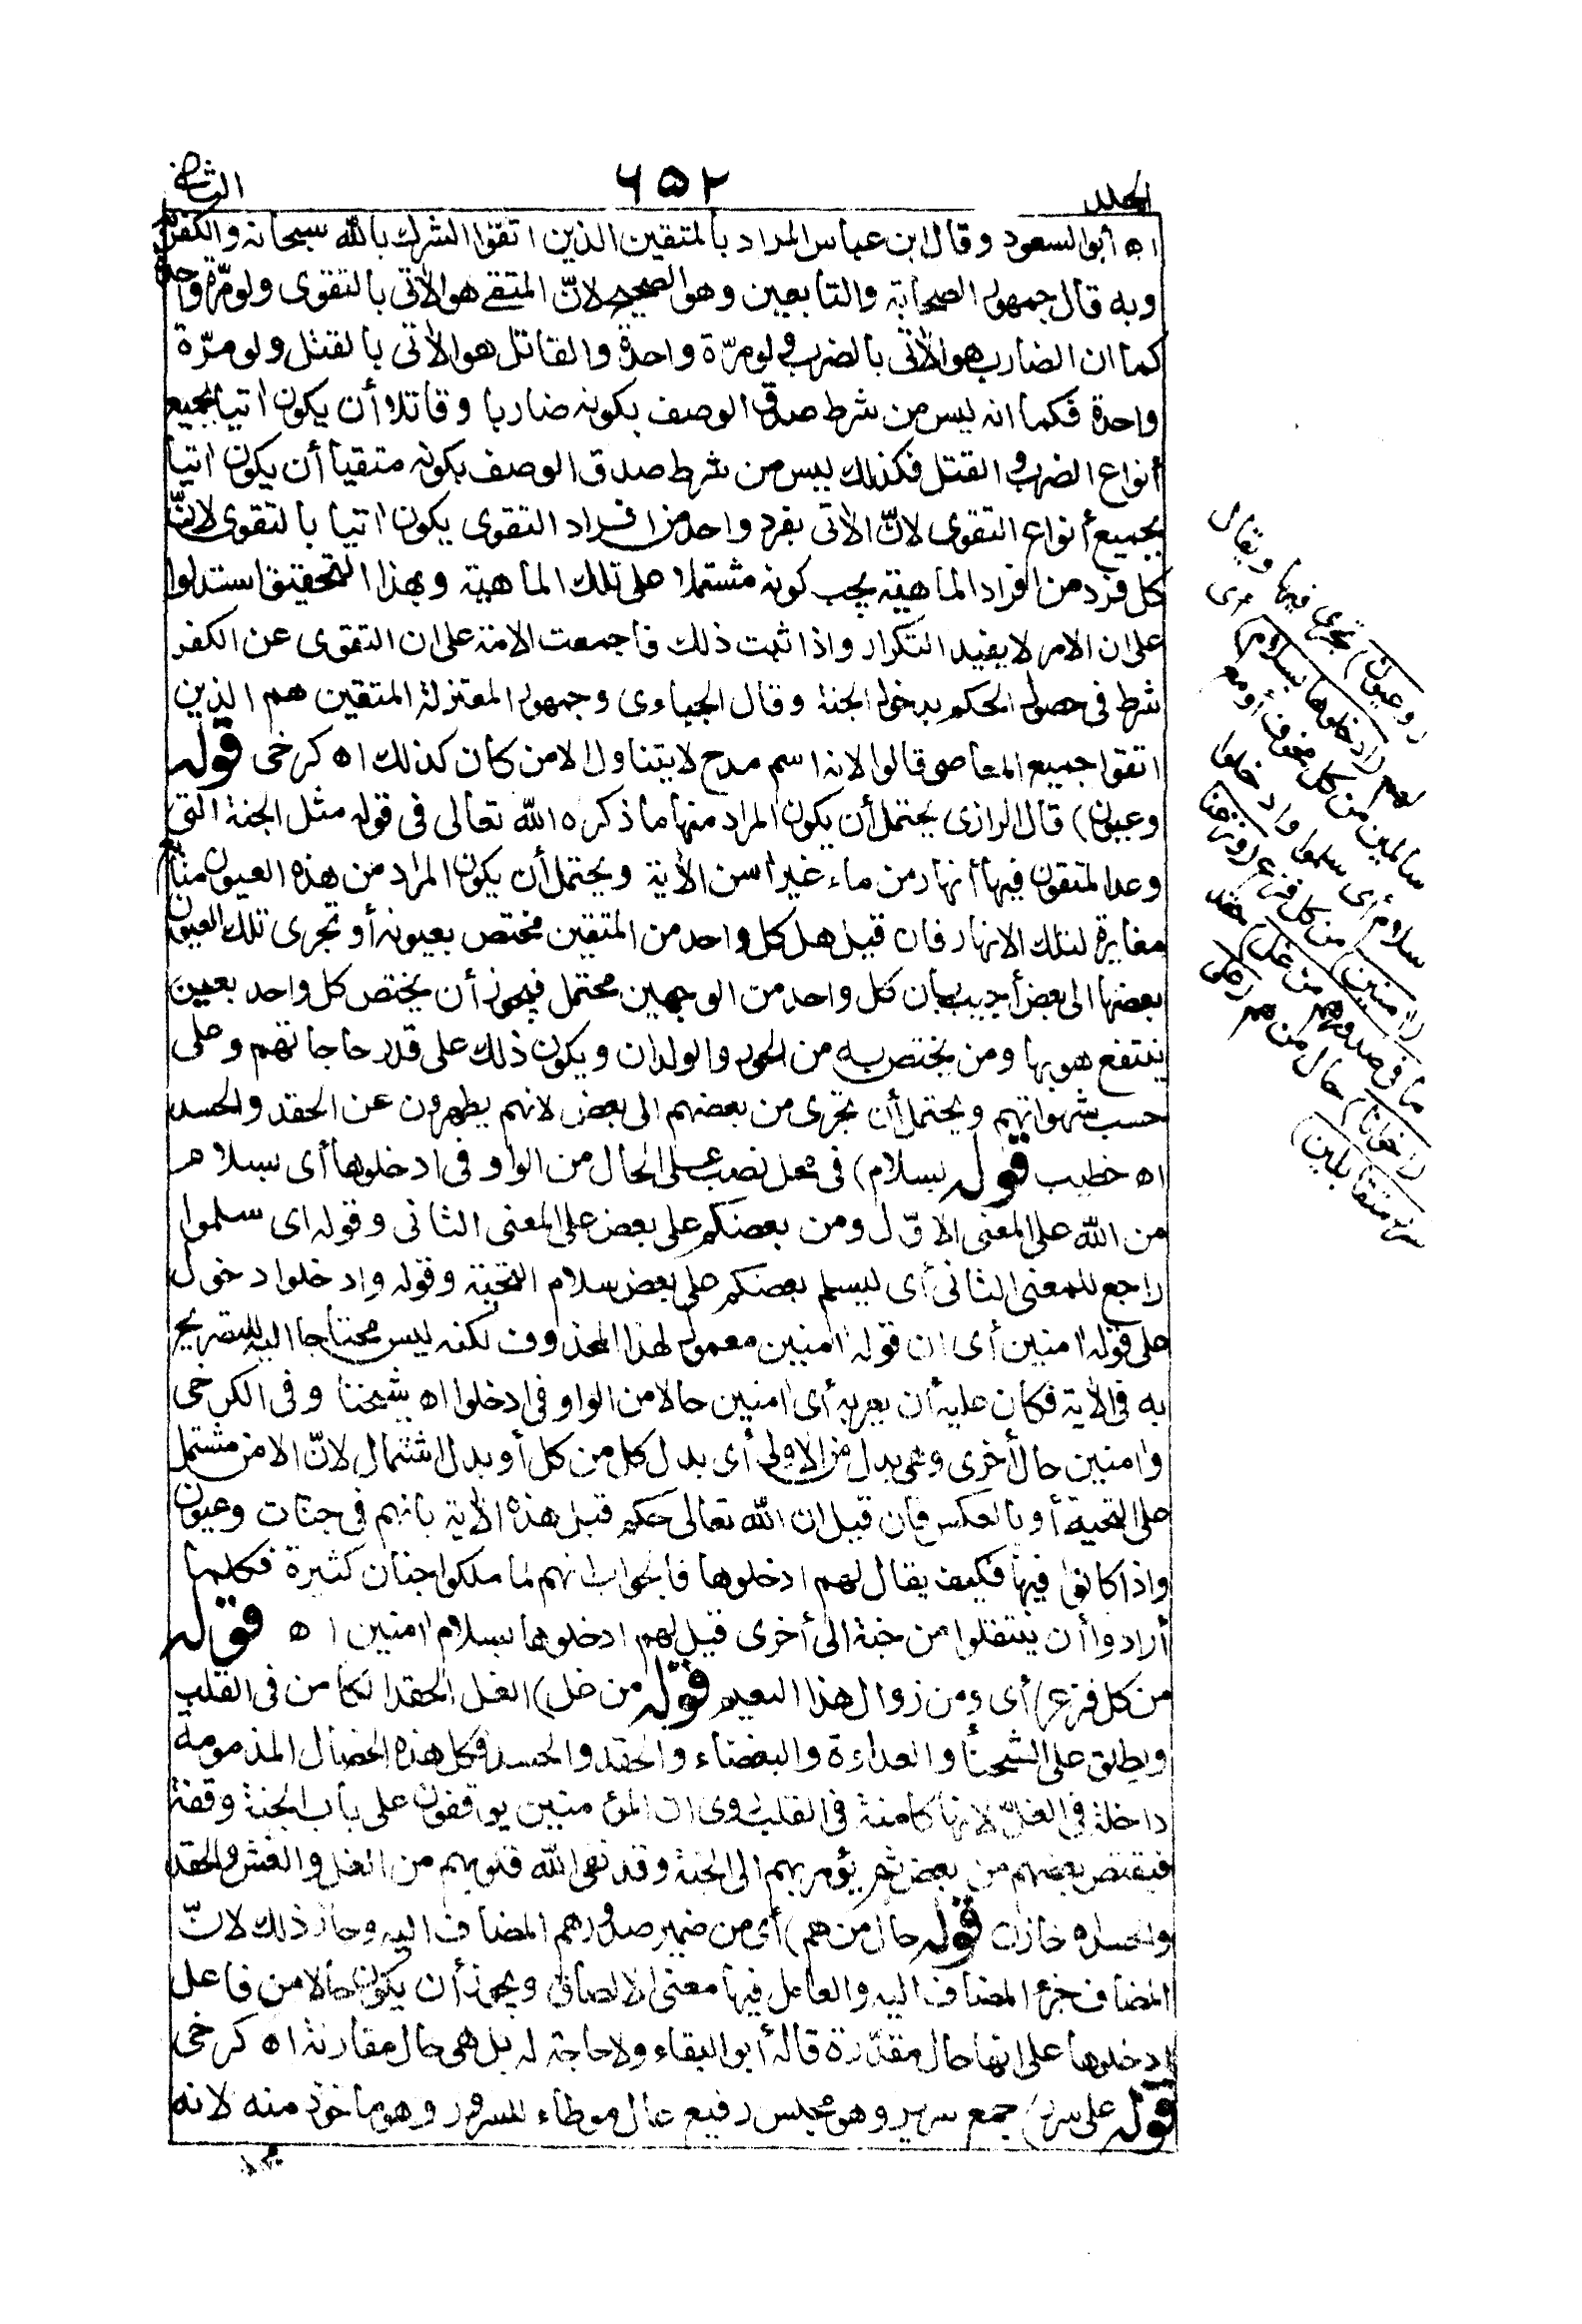 المجلد ٦٥٢ الثاني
اه أبو السعود وقال ابن عباس المراد بالمتقين الذين اتقوا الشرك بالله سبحانه والكفر به
وبه قال جمهور الصحابة والتابعين وهو الصحيح لانّ المتقي هو الأتي بالتقوى ولو مرّة واحدة
كما ان الضارب هو الأتي بالضرب ولو مرّة واحدة والقاتل هو الأتي بالقتل ولو مرّة
واحدة فكما انه ليس من شرط صدق الوصف بكونه ضاربا وقاتلا أن يكون اتيا بجميع
أنواع الضرب والقتل فكذلك ليس من شرط صدق الوصف بكونه متقيا أن يكون اتيا
بجميع أنواع التقوى لانّ الأتي بفرد واحد من افراد التقوى يكون اتيا بالتقوى لانّ
كل فرد من افراد الماهية يجب كونه مشتملا على تلك الماهية وبهذا التحقيق استدلوا
على ان الامر لا يفيد التكرار واذا ثبت ذلك فاجمعت الامة على ان التقوى عن الكفر
شرط في حصول الحكم بدخول الجنة وقال الجباوى وجمهور المعتزلة المتقين هم الذين
اتقوا جميع المعاصى قالوا لانه اسم مدح لا يتناول الا من كان كذلك اه كرخى قوله
وعيون) قال الرازى يحتمل أن يكون المراد منها ما ذكره الله تعالى فى قوله مثل الجنة التى
وعد المتقون فيها أنهار من ماء غير اسن الأية ويحتمل أن يكون المراد من هذه العيون منابع
مغايرة لتلك الانهار فان قيل هل كل واحد من المتقين مختص بعيونه أو تجرى تلك العيون
بعضها الى بعض أجيب بان كل واحد من الوجهين محتمل فيجوز أن يختص كل واحد بعين
ينتفع هو بها ومن يختص به من الحور والولدان ويكون ذلك على قدر حاجاتهم وعلى
حسب شهواتهم ويحتمل أن تجرى من بعضهم الى بعض لانهم يطهرون عن الحقد والحسد
اه خطيب قوله بسلام) فى محل نصب على الحال من الواو فى ادخلوها أى بسلام
من الله على المعنى الاوّل ومن بعضكم على بعض على المعنى الثانى وقوله اى سلموا
راجع للمعنى الثانى أى ليسلم بعضكم على بعض سلام التحية وقوله وادخلوا دخول
على قوله امنين أى ان قوله امنين معمول لهذا المحذوف لكنه ليس محتاجا اليه للتصريح
به فى الأية فكان عليه أن يعربه أى امنين حالا من الواو فى ادخلوا اه شيخنا وفى الكرخى
وامنين حال أخرى وهى بدل من الاولى أى بدل كل من كل أو بدل اشتمال لانّ الامن مشتمل
على التحية أو بالعكس فان قيل ان الله تعالى حكم قبل هذه الأية بانهم فى جنات وعيون
واذا كانوا فيها فكيف يقال لهم ادخلوها فالجواب انهم لما ملكوا جنان كثيرة فكلما
أرادوا أن ينتقلوا من جنة الى أخرى قيل لهم ادخلوها بسلام امنين اه قوله
من كل فزع) أى ومن زوال هذا النعيم قوله من غل) الغل الحقد الكامن فى القلب
ويطلق على الشحنا والعداوة والبغضاء والحقد والحسد وكل هذه الخصال المذمومة
داخلة فى الغلّ لانها كامنة فى القلب روى ان المؤمنين يوقفون على باب الجنة وقفة
فيقتص بعضهم من بعض ثم يؤمر بهم الى الجنة وقد نقى الله قلوبهم من الغل والغش والحقد
والحسد اه خازن قوله حال من هم) أى من ضمير صدورهم المضاف اليه وجاز ذلك لانّ
المضاف جزء المضاف اليه والعامل فيها معنى الالصاق ويجوز أن يكون حالا من فاعل
ادخلوها على انها حال مقدّرة قاله أبو البقاء ولا حاجة له بل هى حال مقارنة اه كرخى
قوله على سرر) جمع سرير وهو مجلس رفيع عال موطاء للسرور وهو ماخوذ منه لانه
(وعيون) تجرى فيها ويقال
لهم (ادخلوها بسلام) اى
سالمين من كل مخوف أو مع
سلام أى سلموا وادخلوا
(امنين) من كل فزع (ونزعنا
ما فى صدورهم من غل) حقد
(اخوانا) حال من هم (على
سرر متقابلين)